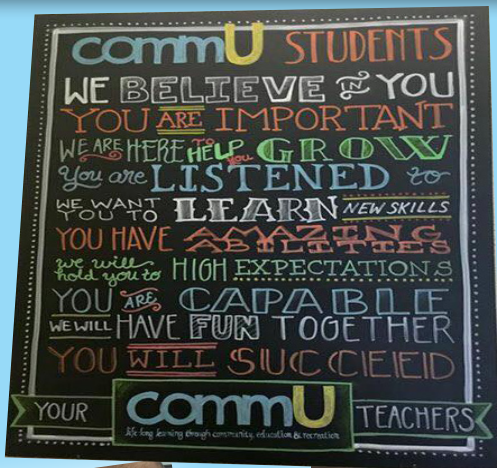 commU STUDENTS
WE BELIEVE IN YOU
YOU ARE IMPORTANT
WE ARE HERE TO HELP you GROW
You are LISTENED to
WE WANT YOU TO LEARN NEW SKILLS
YOU HAVE AMAZING ABILITIES
we will hold you to HIGH EXPECTATIONS
YOU ARE CAPABLE
WE WILL HAVE FUN TOGETHER
YOU WILL SUCCEED
YOUR commU TEACHERS
life long learning through community, education & recreation